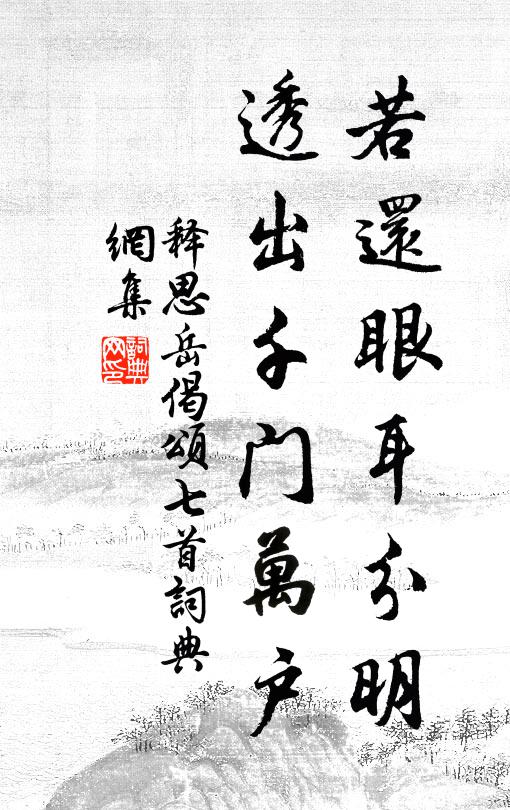 若還眼耳分明
透出千门萬户
释思岳偈頌七首詞典
網集
詞典
网印